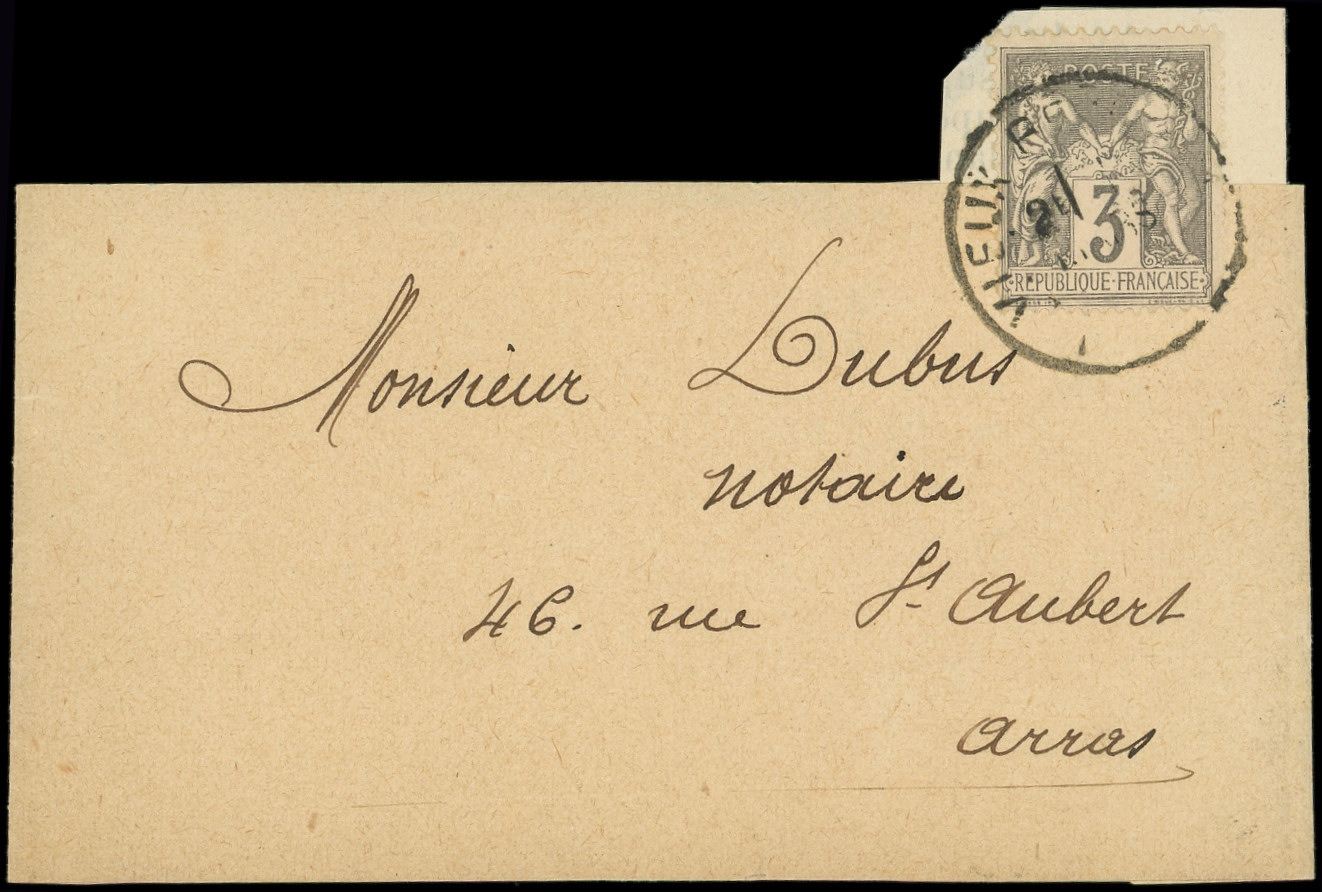 POSTE
VIEUX
3
REPUBLIQUE·FRANCAISE
Monsieur Dubus
notaire
46. rue St. Aubert
Arras